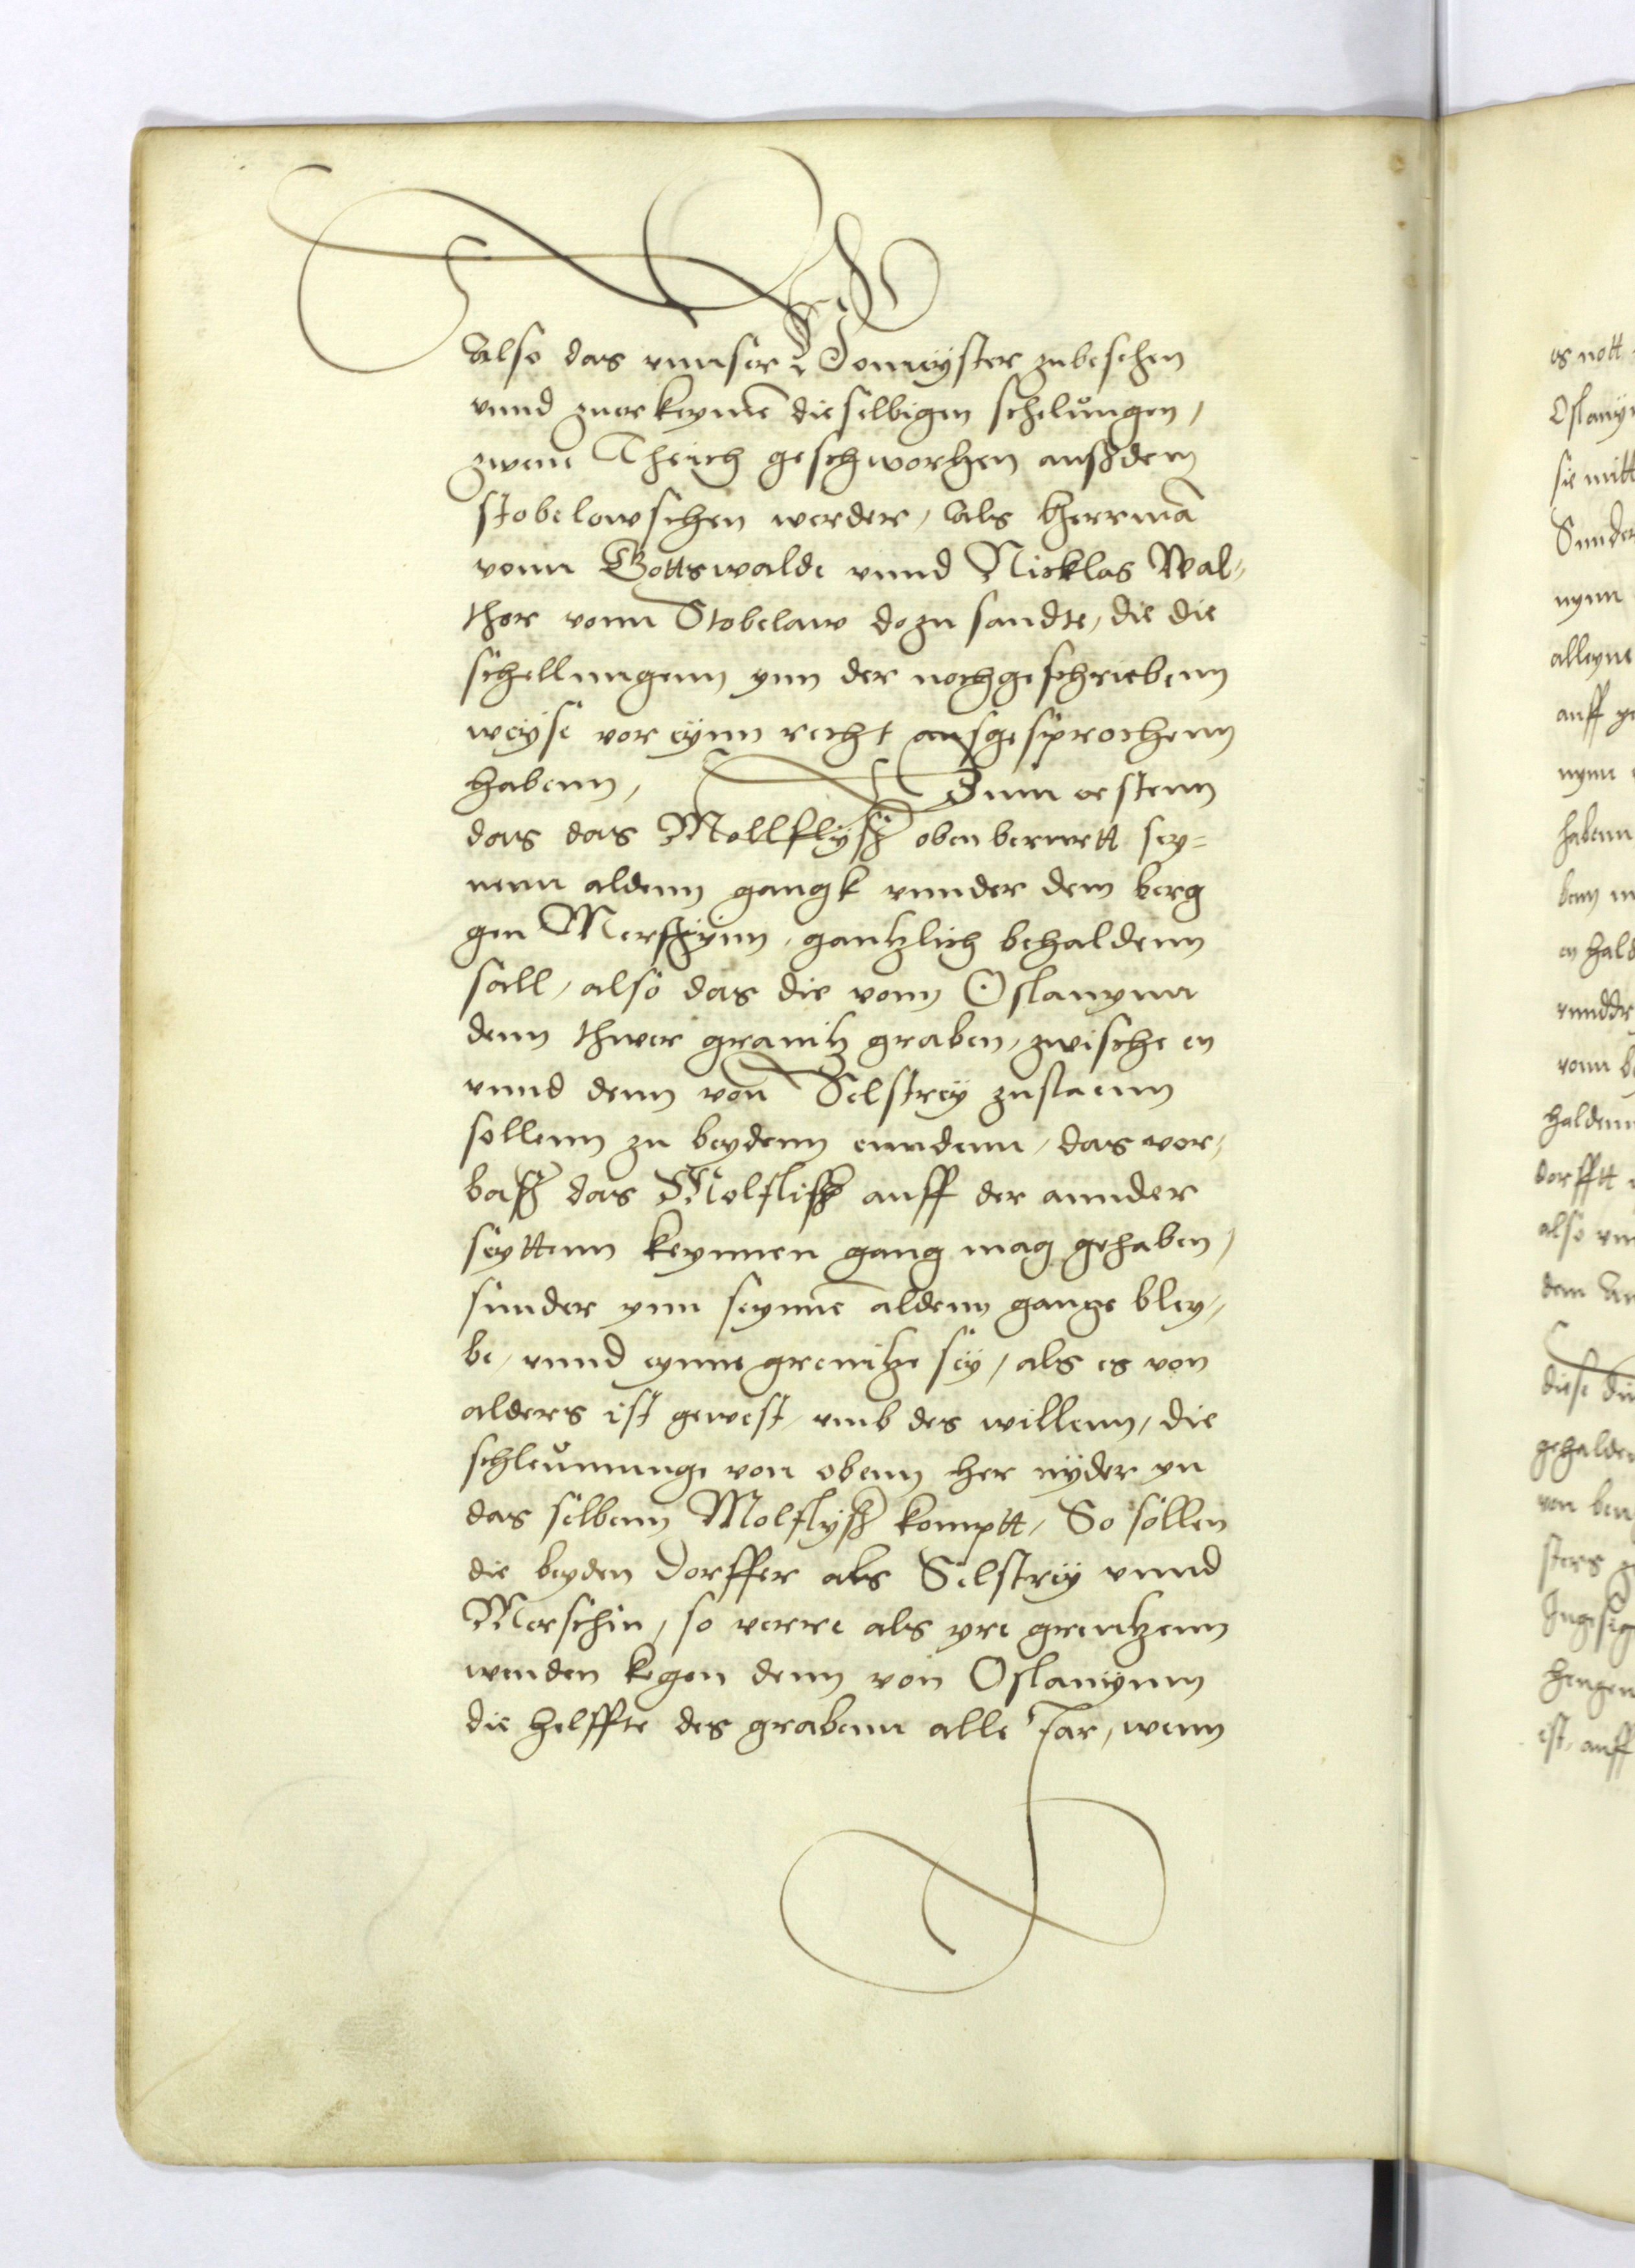 Also das vnnser Homeyster zubesehen
vnnd zuerkeynnē dieselbigen schelůngen,
zwene Theich geschworhen auß dem
stobelowschen werder, Als Herrmā
vonn Gottswalde vnnd Nicklas Wal-
ther vonn Stobelaw dozu sandte, die die
schellungenn ynn der nochgeschriebenn
weyse vor eynn recht ausgesprochenn
habenn, Zum erstenn
das das Mollflyß oben berurtt sey=
nenn aldenn gangk vnnder dem berg
gen Merschynn, gantzlich behaldenn
sall, also das die vonn Oslanynn
denn thwer granitz graben, zwische en
vnnd denn von Selstrey zuslaenn
sollenn zu beydenn enndenn, das vor-
baß das Molfliß auff der annder
seyttenn keynnen gang mag gehaben,
sunder ynn seynnē aldenn gange bley-
be, vnnd eynne grenitze sey, als es von
alders ist gewest, vmb des willenn, die
schleůnnunge von obenn her nyder yn
das selbenn Molflyß komptt, So sollen
die beyden Dorffer als Selstrey vnnd
Merschin, so verre als yre grentzenn
wenden kegen denn von Oslanynn
die helffte des grabenn alle Jar, wenn
es nott
Oslany
sie mitt
Sunder
nynn
alleyne
auff
habenn
dorfftt
also
gehalden
ist, auff